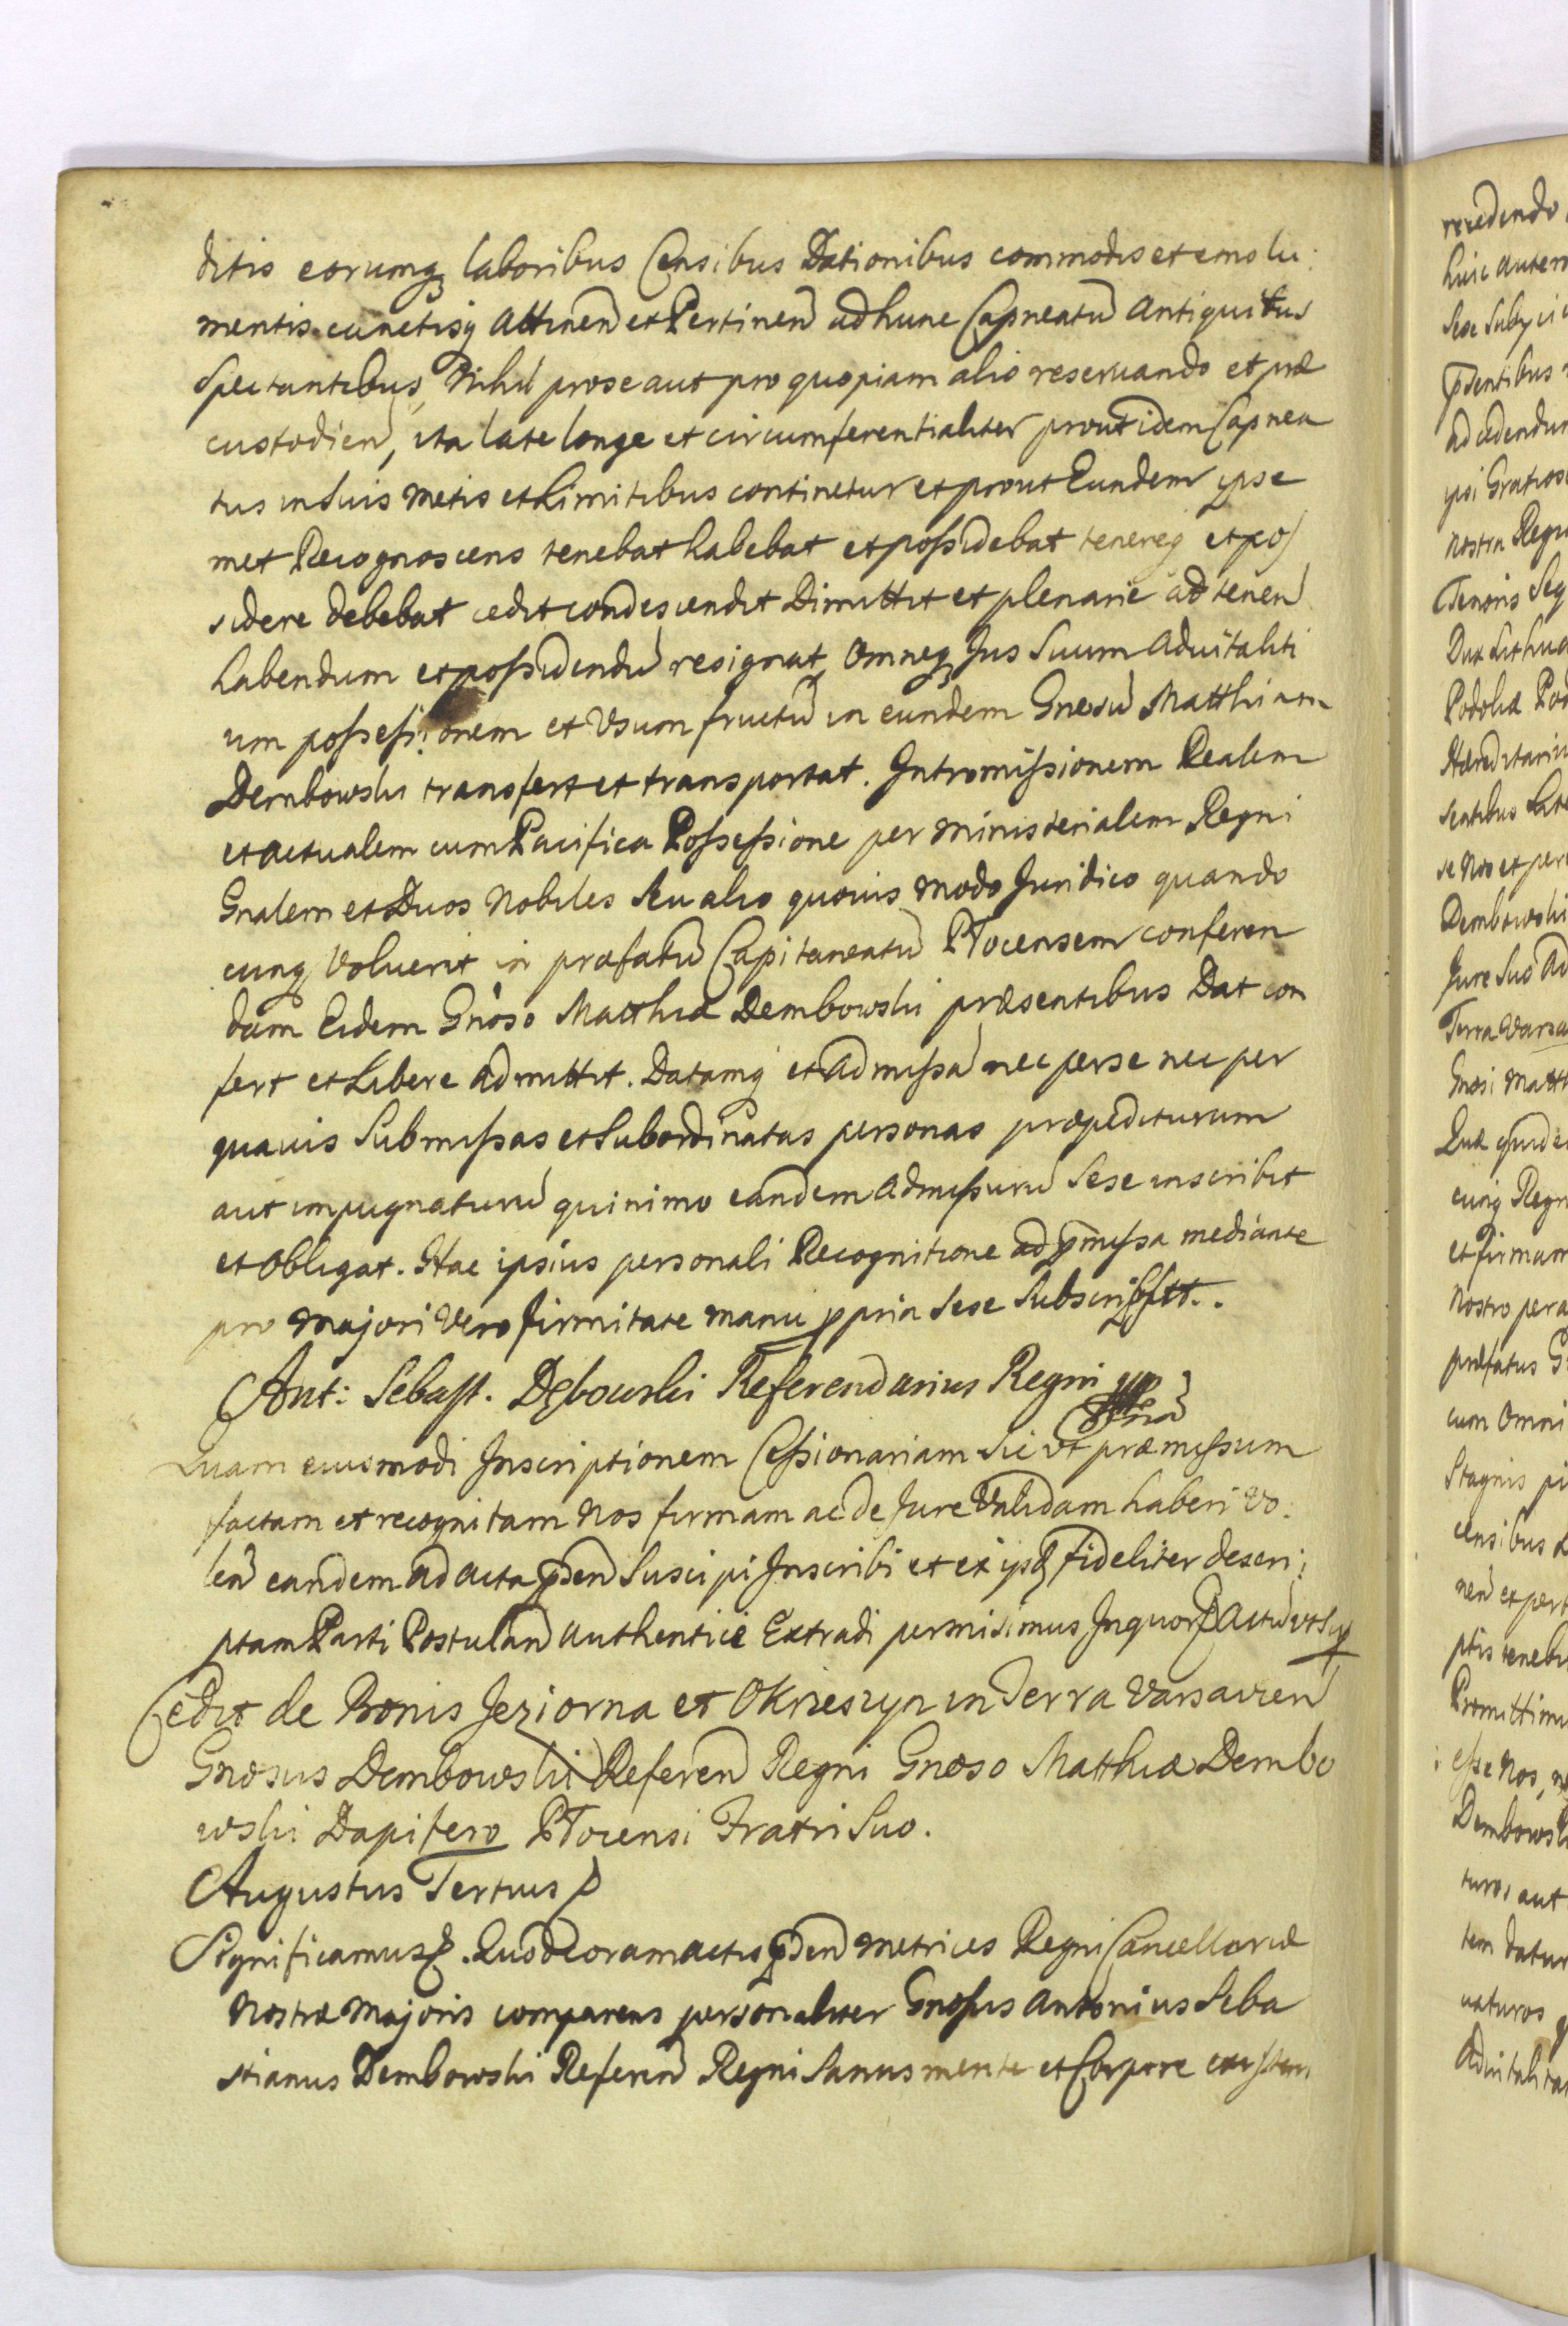 ditis eorumq laboribus Censibus Dationibus commodis et emolu:
mentis cunctisq Attinen et Pertinen ad hunc Capneatu Antiquitus
Spectantibus, Nihil pro se aut pro quopiam alio reservando et præ
custodien, ita late longe et circumferentialiter prout idem Capnea
tus in Suis Metis et Limitibus continetur et prout Eundem ipse
met Recognoscens tenebat habebat et possidebat tenereq et pos
sidere debebat cedit condescendit Dimittit et plenarie ad tenen
habendum et possidendu resignat Omneq Jus Suum Advitaliti
um possessionem et Usum fructu in eundem Gnosu Matthiam
Dembowski transfert et transportat. Intromissionem Realem
et actualem cum Pacifica Possessione per Ministerialem Regni
Gnalem et Duos Nobiles Seu alio quovis Modo Juridico quando
cunq Voluerit in præfatu Capitaneatu Plocensem conferen
dam Eidem Gnoso Matthiæ Dembowski præsentibus Dat con
fert et Libere admittit. Datamq et Admissa nec per se nec per
quavis Submissas et Subordinatas personas præpediturum
aut impugnaturu quinimo eandem Admissuru Sese inscribit
et Obligat. Hac ipsius personali Recognitione ad pmissa mediante
pro Majori Vero firmitate manu ppria Sese Subscripsit.
Ant: Sebast. Dębowski Referendarius Regni
Quam eiusmodi Inscriptionem Cessionariam Sic ut præmissum
factam et recognitam Nos firmam ac de Jure Validam haberi vo:
len eandem ad acta pden Suscipi Inscribi et ex ijsd fideliter descri:
ptam Parti Postulan authentice Extradi permisimus In quor Actu ut Sup
Cedit de Bonis Jeziorna et Okrzeszyn in Terra Varsavien
Gnosus Dembowski Referen Regni Gnoso Matthiæ Dembo
wski Dapifero Plocensi Fratri Suo.
Augustus Tertius
Significamus. Quod Coram actis pden Metrices Regni Cancellariæ
Nostræ Majoris comparens personaliter Gnosus Antonius Seba
stianus Dembowski Referen Regni Sanus mente et Corpore existens
recedendo
huic autem
Sese Subijci
psentibus
ad cedendum
ipsi Gratiose
nostra Regia
Tenoris Seq
Dux Lithua
Podoliæ Pod
Hæreditariu
se Nos et per
Dembowski
Jure Suo Ad
Terra Varsa
Gnosi Matth
Quæ quide
cunq Regn
et firmam
Nostro pera
præfatus G
cum Omni
Stagnis pi
censibus
nen et pert
ptis tenebi
Promittimu
esse Nos,
Dembowski
turos aut
tem datur
Advitalita